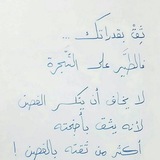 ثِق بقدراتك ...
فالطَّير على الشَّجرة
لا يخاف أن ينكسر الغصن
لأنه يثق بأجنحته
أكثر من ثقته بالغصن !